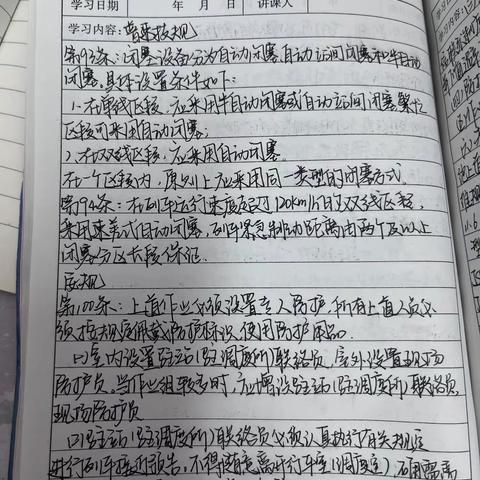 学习日期 年 月 日 讲课人
学习内容: 普采技规
第93条:闭塞设备分为自动闭塞、自动站间闭塞和半自动
闭塞,具体设置条件如下:
1.在单线区段,应采用半自动闭塞或自动站间闭塞,繁忙
区段可采用自动闭塞;
2.在双线区段,应采用自动闭塞.
在一个区段内,原则上应采用同一类型的闭塞方式
第94条:在列车运行速度超过120km/h的双线区段,
采用速差式自动闭塞,列车紧急制动距离由两个及以上
闭塞分区长度保证.
安规
第100条:上道作业必须设置专人防护,所有上道人员必
须按规定佩戴防护标识,使用防护用品.
(1)室内设置驻站(驻调度所)联络员,室外设置现场
防护员.当作业组较多时,应增设驻站(驻调度所)联络员,
现场防护员
(2)驻站(驻调度所)联络员必须认真执行有关规定
进行列车接近预告,不得随意离开行车室(调度室)
学习内容: